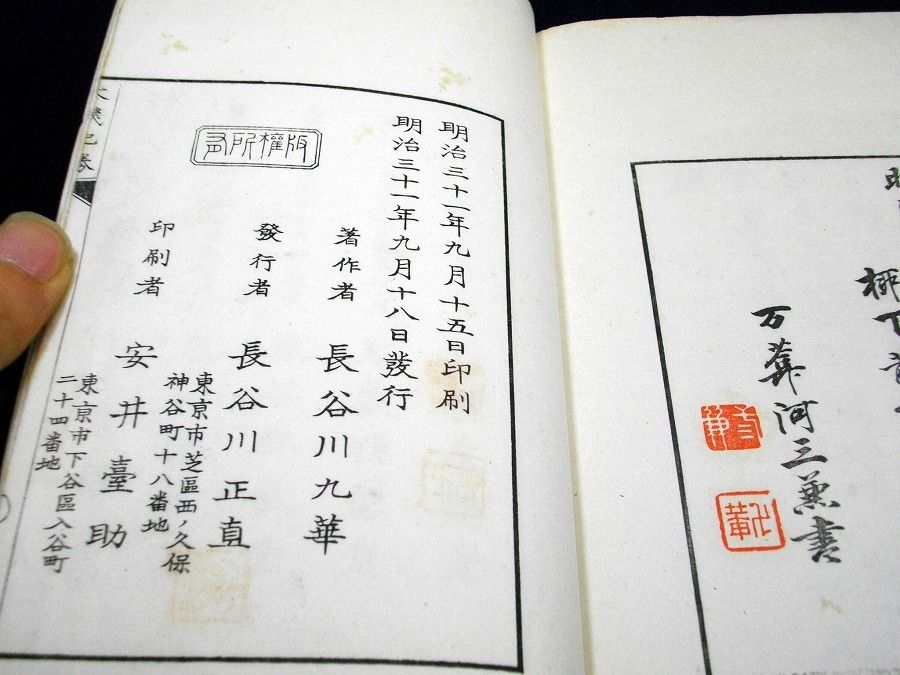 万華河三兼書
明治三十一年九月十五日印刷
明治三十一年九月十八日發行
著作者 長谷川九華
發行者 長谷川正直
東京市芝區西ノ久保
神谷町十八番地
印刷者 安井臺助
東京市下谷區入谷町
二十四番地
版權所有